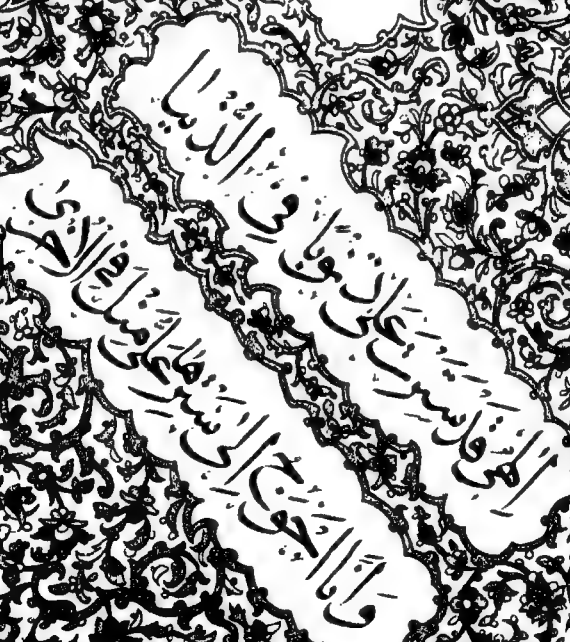 إِلٰهِي قَدْ سَتَرْتَ عَلَيَّ ذُنُوبًا فِي الدُّنْيَا
وَأَنَا أَحْوَجُ إِلَىٰ سَتْرِهَا عَلَيَّ مِنْكَ فِي الْأُخْرَىٰ